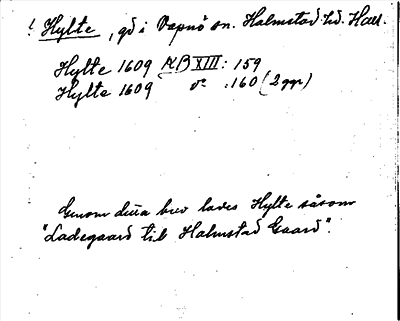 ! Hylte, gd i Vapnö sn. Halmstad hd. Hall.
Hylte 1609 ÆB XIII: 159
Hylte 1609 do :160 (2 ggr)
Genom dessa brev lades Hylte såsom
"Ladegaard til Halmstad Gaard".